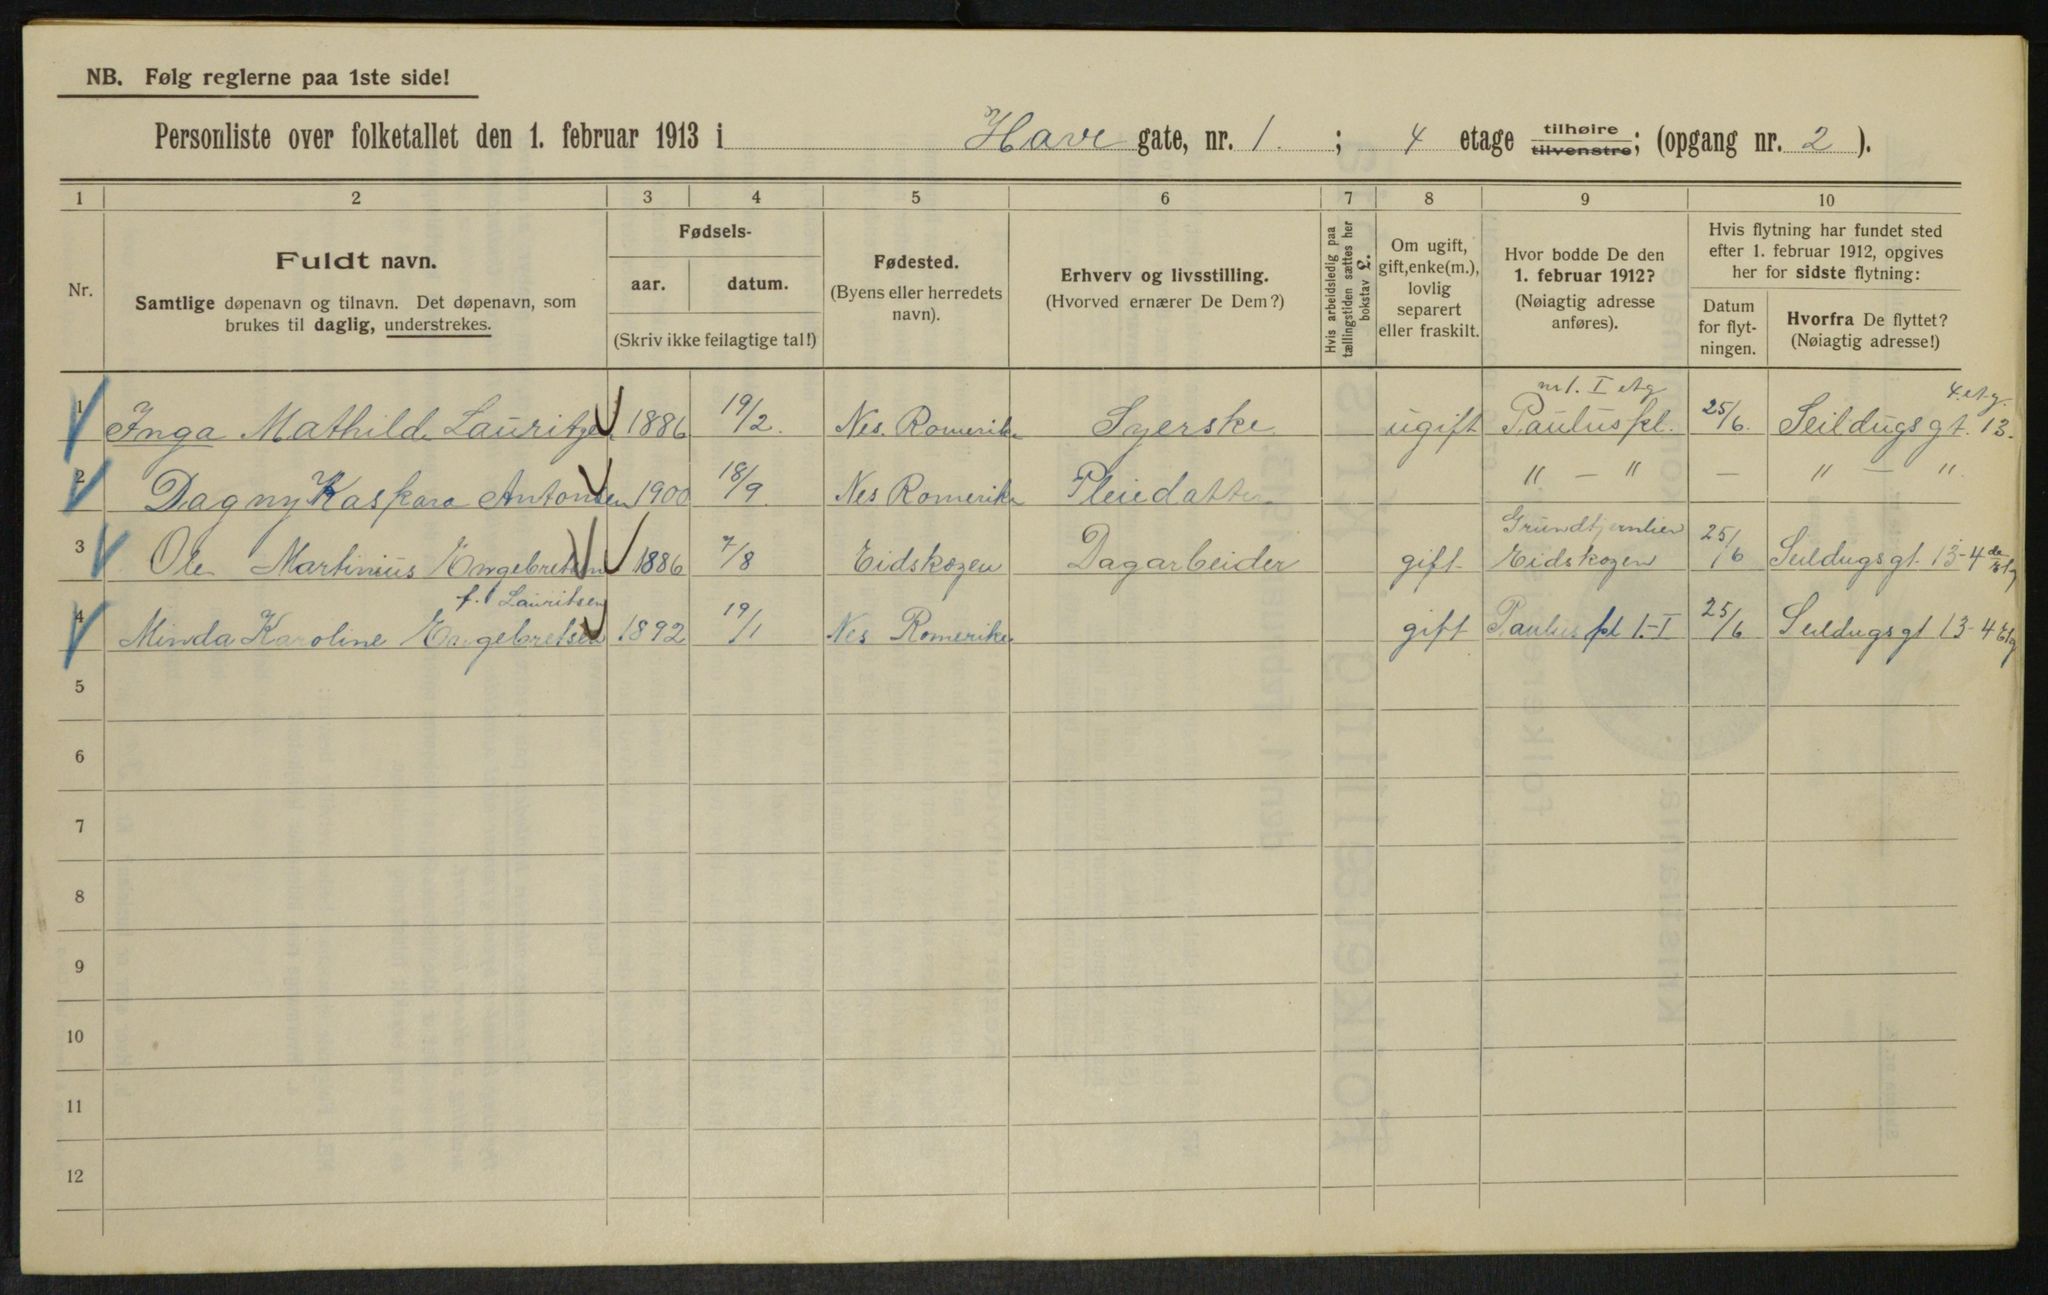 NB. Følg reglerne paa 1ste side!
Personliste over folketallet den 1. februar 1913 i Have gate, nr. 1 ; 4 etage tilhøire tilvenstre; (opgang nr. 2 ).
1 2 3 4 5 6 7 8 9 10
Nr.
Fuldt navn.
Samtlige døpenavn og tilnavn. Det døpenavn, som
brukes til daglig, understrekes.
Fødsels-
aar. datum.
(Skriv ikke feilagtige tal!)
Fødested.
(Byens eller herredets
navn).
Erhverv og livsstilling.
(Hvorved ernærer De Dem?)
Hvis arbeidsledig paa
tællingstiden sættes her
bokstav L.
Om ugift,
gift, enke(m.),
lovlig
separert
eller fraskilt.
Hvor bodde De den
1. februar 1912?
(Nøiagtig adresse
anføres).
Hvis flytning har fundet sted
efter 1. februar 1912, opgives
her for sidste flytning:
Datum
for flyt-
ningen.
Hvorfra De flyttet?
(Nøiagtig adresse!)
nr 1. I etg 4. etg.
1 Inga Mathilde Lauritzen 1886 19/2. Nes. Romerike Syerske ugift Pauluspl. 25/6. Seildugsgt. 13.
2 Dagny Kaspara Antonsen 1900 18/9. Nes Romerike Pleiedatter " — " — " — "
Grundtjernlien
3 Ole Martinius Engebretsen 1886 7/8 Eidskogen Dagarbeider gift Eidskogen 25/6 Seildugsgt 13-4de Etg
f. Lauritsen
4 Minda Karoline Engebretsen 1892 19/1 Nes Romerike gift Paulus pl 1-I 25/6 Seildugsgt 13-4 Etg
5
6
7
8
9
10
11
12